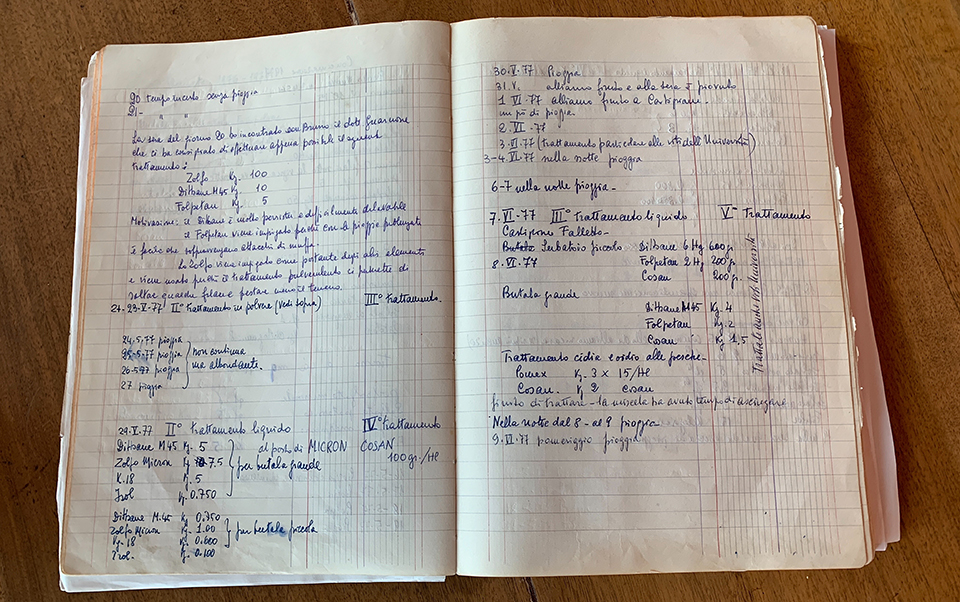 20 tempo incerto senza pioggia
21- " "
La sera del giorno 20 ho incontrato con Bruno il dott. Guarnone
che ci ha consigliato di effettuare appena possibile il seguente
trattamento:
Zolfo Kg. 100
Dithane M45 Kg. 10
Folpetan Kg. 5
Motivazione: il Dithane è molto persistente e difficilmente dilavabile
il Folpetan viene impiegato perché con la pioggia prolungata
è facile che sopravvengano attacchi di muffa.
Lo Zolfo viene impiegato come portante degli altri elementi
e viene usato perché il trattamento pulverulento ci permette di
saltare qualche filare e pestare meno il terreno.
22-23-V-77 II° trattamento in polvere (Vedi sopra) III° trattamento.
24.5.77 pioggia
25.5.77 pioggia
26-5-77 pioggia
27 pioggia
non continua
ma abbondante.
29.V.77 II° trattamento liquido IV° trattamento
Dithane M45 Kg. 5 al posto di MICRON COSAN
Zolfo Micron Kg 7.5 per butala grande 100 gr./Hl
K.18 Kg. 5
Irol Kg. 0.750
Dithane M.45 Kg 0.750
Zolfo Micron Kg. 1.00 per butala piccola
Kg. 18 Kg 0.600
Irol. Kg. 0.100
30.V.77 Pioggia
31.V. abbiamo finito e alla sera è piovuto
1 VI.77 abbiamo finito a Castiprono.
un pò di pioggia.
2.VI.77
3.VI.77 (trattamento particolare alle viti dell'Università)
3-4.VI.77 nella notte pioggia
6-7 nella notte pioggia-
7.VI-77 III° trattamento liquido V° Trattamento
Castiprono Falletto-
Butala Serbatoio piccolo Dithane 6 Hg 600 gr.
8.VI.77 Folpetan 2 Hg 200 gr.
Cosan 200 gr.
Butala grande
Dithane M45 Kg. 4
Folpetan Kg. 2
Cosan Kg 1,5
Trattate anche viti Università
Trattamento cidia e oidio alle pesche-
Pomex Kg. 3 x 15/Hl
Cosan. Kg 2 Cosan
finito di trattare - la miscela ha avuto tempo di asciugare
Nella notte dal 8- al 9 pioggia
9.VI.77 pomeriggio pioggia